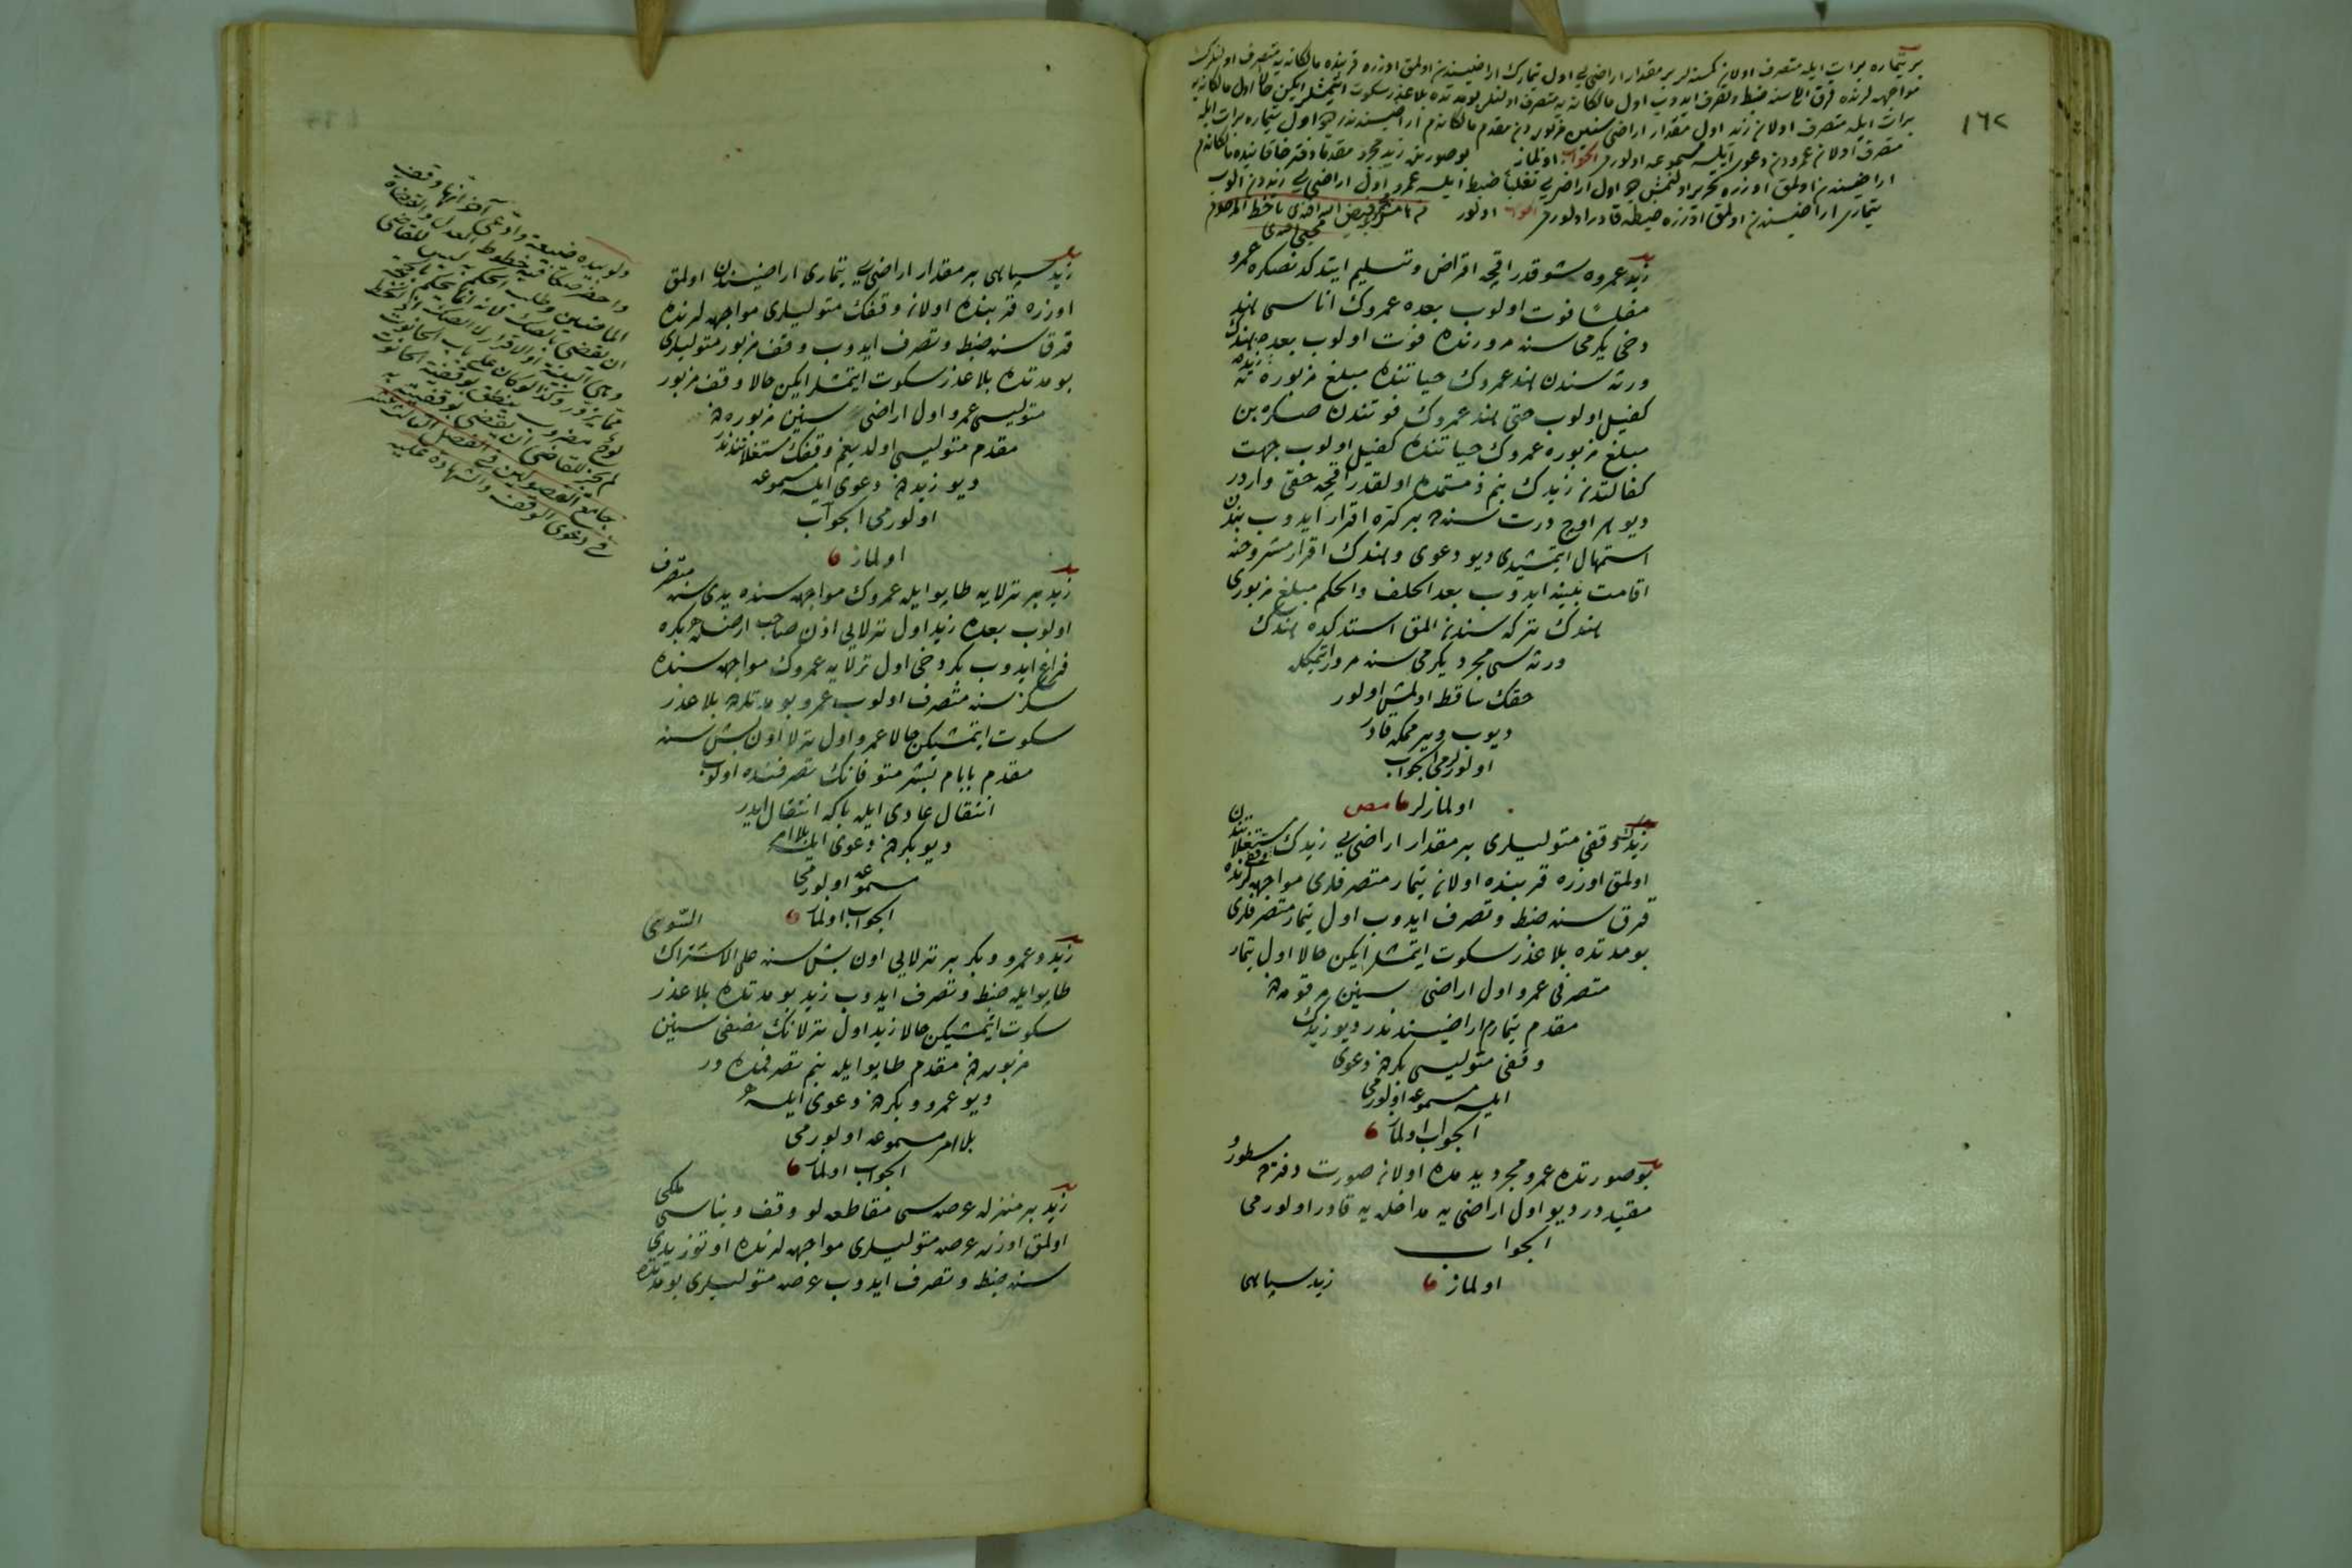 ١٦٢
بر تیماره برات ایله متصرف اولان کمسنه لر بر مقدار اراضی یی اول تیمارك اراضیسندن اولمق اوزره قربنده مالکانه یه متصرف اولنلرك
مواجهه لرنده قرق الی سنه ضبط و تصرف ایدوب اول مالکانه یه متصرف اولنلر بو مدتده بلا عذر سکوت ایتمشلر ایکن حالا اول مالکانه یه
برات ایله متصرف اولان زید اول مقدار اراضی سنین مزبوره دن مقدم مالکانه م اراضیسندندر دیو اول تیماره برات ایله
متصرف اولان عمرودن دعوی ایلسه مسموعه اولورمی الجواب اولماز بو صورتده زید مجرد مقدما دفتر خاقانیده مالکانه م
اراضیسندن اولمق اوزره تحریر اولنمش دیو اول اراضی یی تغلبا ضبط ایلسه عمرو اول اراضی یی زیددن الوب
تیماری اراضیسندن اولمق اوزره ضبطه قادر اولورمی الجواب اولور
زید عمروه شو قدر اقچه اقراض و تسلیم ایتدکدنصکره عمرو
مفلسا فوت اولوب بعده عمروك اناسی هند
دخی یکرمی سنه مرورنده فوت اولوب بعده زید هندك
ورثه سندن هند عمروك حیاتنده مبلغ مزبوره
کفیل اولوب حتی هند عمروك فوتندن صکره بن
مبلغ مزبوره عمروك حیاتنده کفیل اولوب جهت
کفالتدن زیدك بنم ذمتمده اولقدر اقچه حقی واردر
دیو هر اوچ درت سنه ده بر کره اقرار ایدوب بندن
استمهال ایتمشیدی دیو دعوی و هندك اقرار مشروحنه
اقامت بینه ایدوب بعد الحلف والحکم مبلغ مزبوری
هندك ترکه سندن المق استدکده هندك
ورثه سی مجرد یکرمی سنه مرور ایتمکله
حقك ساقط اولمش اولور
دیوب ویرمکه قادر
اولورلرمی الجواب
اولمازلر
زیدك وقفی متولیلری بر مقدار اراضی یی زیدك وقفی مستغلاتندن
اولمق اوزره قربنده اولان تیمار متصرفلری مواجهه لرنده
قرق سنه ضبط و تصرف ایدوب اول تیمار متصرفلری
بو مدتده بلا عذر سکوت ایتمشلر ایکن حالا اول تیمار
متصرفی عمرو اول اراضی سنین مرقومه دن
مقدم تیمارم اراضیسندندر دیو زیدك
وقفی متولیسی بکردن دعوی
ایلسه مسموعه اولورمی
الجواب اولماز
بو صورتده عمرو مجرد یدمده اولان صورت دفترده مسطور و
مقیددر دیو اول اراضی یه مداخله یه قادر اولورمی
الجواب
اولماز
زید سپاهی
زید سپاهی بر مقدار اراضی یی تیماری اراضیسندن اولمق
اوزره قربنده اولان وقفك متولیلری مواجهه لرنده
قرق سنه ضبط و تصرف ایدوب وقف مزبور متولیلری
بو مدتده بلا عذر سکوت ایتمشلر ایکن حالا وقف مزبور
متولیسی عمرو اول اراضی سنین مزبوره دن
مقدم متولیسی اولدیغم وقفك مستغلاتندندر
دیو زیددن دعوی ایلسه مسموعه
اولورمی الجواب
اولماز
زید بر ترلایه طاپو ایله عمروك مواجهه سنده یدی سنه متصرف
اولوب بعده زید اول ترلایی اذن صاحب ارضله بکره
فراغ ایدوب بکر دخی اول ترلایه عمروك مواجهه سنده
سکز سنه متصرف اولوب عمرو بو مدتده بلا عذر
سکوت ایتمشیکن حالا عمرو اول ترلا اون بش سنه
مقدم بابام بشر متوفانك تصرفنده اولوب
انتقال عادی ایله بکا انتقال ایدر
دیو بکردن دعوی ایلسه بلا امر
مسموعه اولورمی
الجواب اولماز
زید و عمرو و بکر بر ترلایی اون بش سنه علی الاشتراك السوی
طاپو ایله ضبط و تصرف ایدوب زید بو مدتده بلا عذر
سکوت ایتمشیکن حالا زید اول ترلانك نصفی سنین
مزبوره دن مقدم طاپو ایله بنم تصرفمده در
دیو عمرو و بکردن دعوی ایلسه
بلا امر مسموعه اولورمی
الجواب اولماز
زید بر منزله عرصه سی مقاطعه لو وقف و بناسی ملکی
اولمق اوزره عرصه متولیلری مواجهه لرنده اوتوز یدی
سنه ضبط و تصرف ایدوب عرصه متولیلری بو مدتده
ولو بیده ضیعة وادعی آخر انها وقف
واحضر صکا فیه خطوط العدل والقضاة
الماضین وطلب الحکم به لیس للقاضی
ان یقضی بالصك لانه انما یحکم بالحجة
وهی البینة او الاقرار لا الصك لان الخط
مما یزور وکذا لو کان علی باب الحانوت
لوح مضروب ینطق بوقفیة الحانوت
لم یجز للقاضی ان یقضی بوقفیته به
جامع الفصولین فی الفصل الثالث عشر
فی دعوی الوقف والشهادة علیه